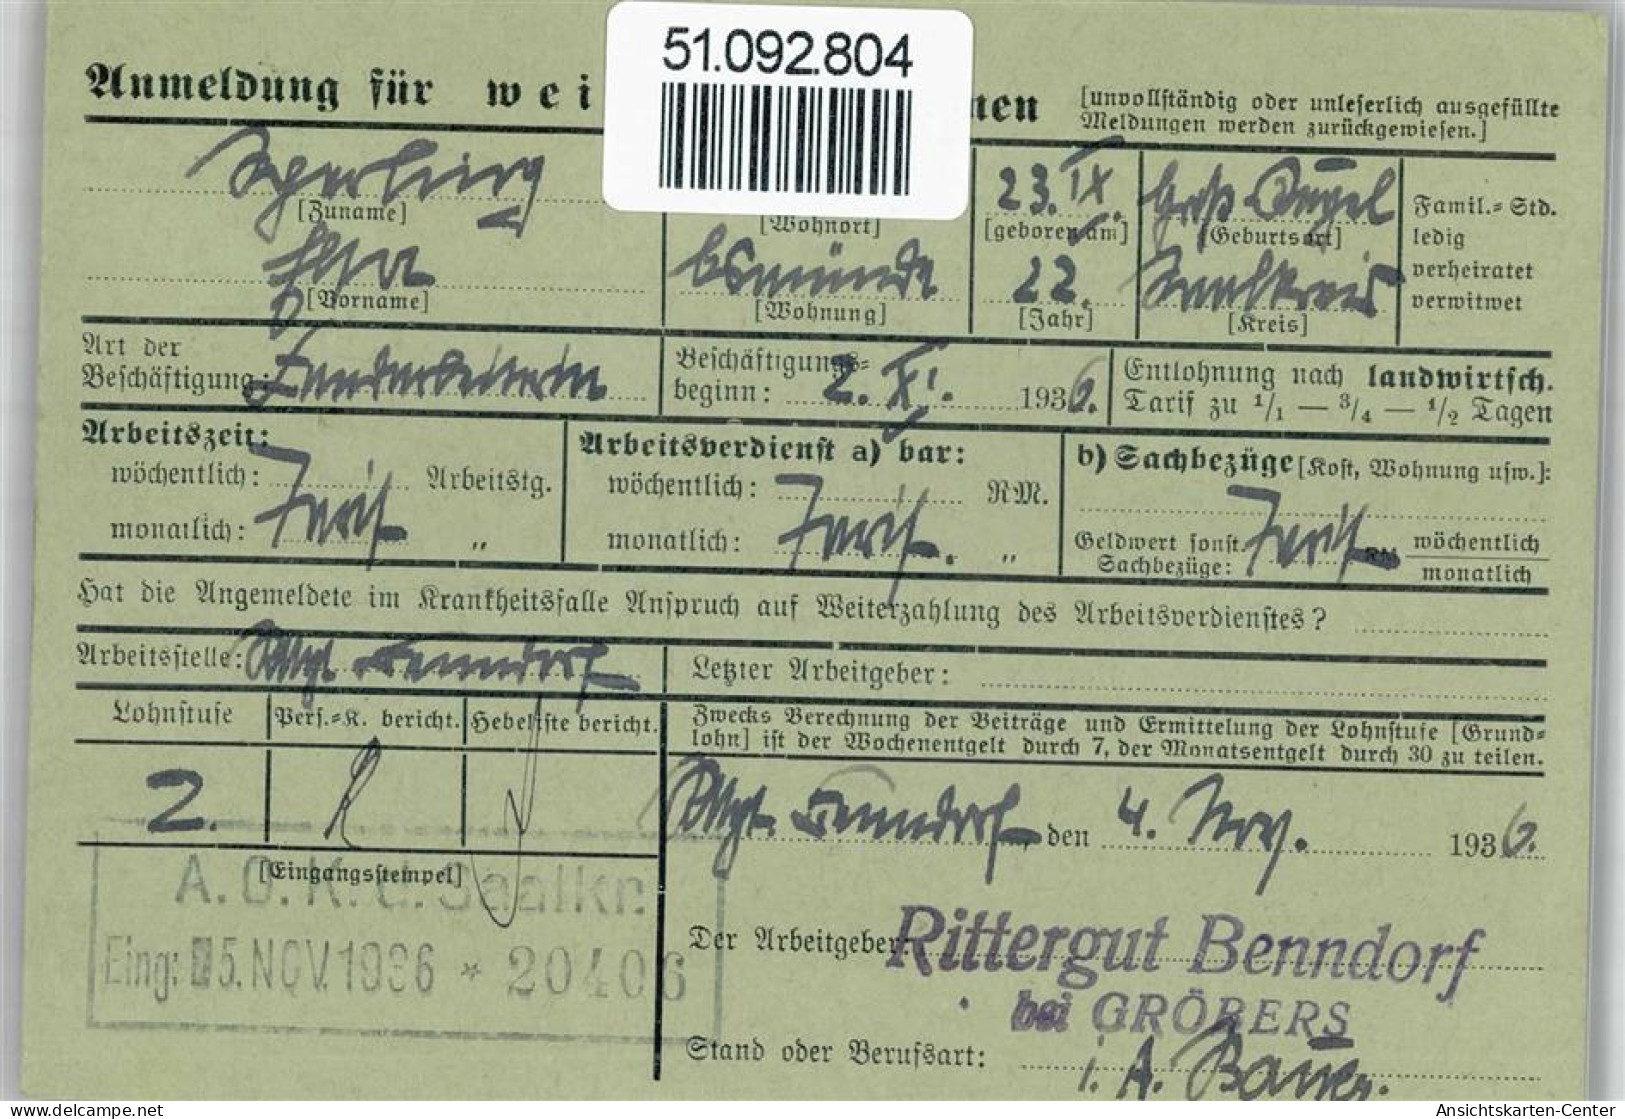 51.092.804
Anmeldung für wei nen [unvollständig oder unleserlich ausgefüllte
Meldungen werden zurückgewiesen.]
Sperling 23. IX. Groß Kugel
[Zuname] [Wohnort] [geboren am] [Geburtsort] Famil.=Std.
ledig
Elsa Osmünde 22. Saalkreis verheiratet
[Vorname] [Wohnung] [Jahr] [Kreis] verwitwet
Art der
Beschäftigung: Landarbeiterin
Beschäftigungs=
beginn: 2. XI. 1936.
Entlohnung nach landwirtsch.
Tarif zu 1/1 — 3/4 — 1/2 Tagen
Arbeitszeit:
wöchentlich: Arbeitstg.
monatlich: "
Arbeitsverdienst a) bar:
wöchentlich: RM.
monatlich: "
b) Sachbezüge [Kost, Wohnung usw.]:
Geldwert sonst.
Sachbezüge: RM wöchentlich
monatlich
Hat die Angemeldete im Krankheitsfalle Anspruch auf Weiterzahlung des Arbeitsverdienstes?
Arbeitsstelle: Rttgt. Benndorf Letzter Arbeitgeber:
Lohnstufe Pers.=K. bericht. Hebeliste bericht.
2.
Zwecks Berechnung der Beiträge und Ermittelung der Lohnstufe [Grund=
lohn] ist der Wochenentgelt durch 7, der Monatsentgelt durch 30 zu teilen.
Rttgt. Benndorf, den 4. Nov. 1936.
[Eingangsstempel]
A.O.K. d. Saalkr.
Eing: 5. NOV. 1936 * 20406
Der Arbeitgeber: Rittergut Benndorf
bei GRÖBERS
Stand oder Berufsart: i. A. Bauer.
www.delcampe.net
Ansichtskarten-Center